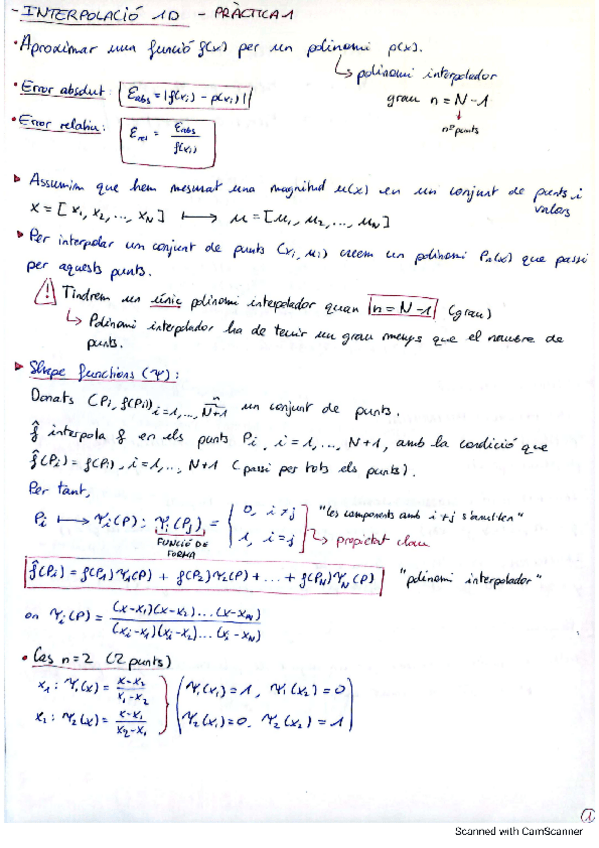 - INTERPOLACIÓ 1D - PRÀCTICA 1
• Aproximar una funció f(x) per un polinomi p(x).
↳ polinomi interpolador
grau n = N-1
↓
nº punts
• Error absolut: Eabs = |f(xi) - p(xi)|
• Error relatiu: Erel = Eabs / f(xi)
▶ Assumim que hem mesurat una magnitud u(x) en un conjunt de punts i valors
x = [x1, x2, ..., xN] ⟼ u = [u1, u2, ..., uN]
▶ Per interpolar un conjunt de punts (xi, ui) creem un polinomi Pn(x) que passi
per aquests punts.
⚠ Tindrem un únic polinomi interpolador quan n = N-1 (grau)
↳ Polinomi interpolador ha de tenir un grau menys que el nombre de
punts.
▶ Shape functions (Ψ):
Donats (Pi, f(Pi)) i=1, ..., N+1 n un conjunt de punts.
f̂ interpola f en els punts Pi, i = 1, ..., N+1, amb la condició que
f̂(Pi) = f(Pi), i=1, ..., N+1 (passi per tots els punts).
Per tant,
Pi ⟼ Ψi(P) : Ψi(Pj) = { 0, i ≠ j "les components amb i ≠ j s'anul·len"
1, i = j ↳ propietat clau
FUNCIÓ DE
FORMA
f̂(Pi) = f(P1)Ψ1(P) + f(P2)Ψ2(P) + ... + f(PN)ΨN(P) "polinomi interpolador"
on Ψi(P) = (x-x1)(x-x2)...(x-xN) / (xi-x1)(xi-x2)...(xi-xN)
• Cas n=2 (2 punts)
x1 : Ψ1(x) = x-x2 / x1-x2 ( Ψ1(x1) = 1, Ψ1(x2) = 0
x2 : Ψ2(x) = x-x1 / x2-x1 Ψ2(x1) = 0, Ψ2(x2) = 1 )
1
Scanned with CamScanner